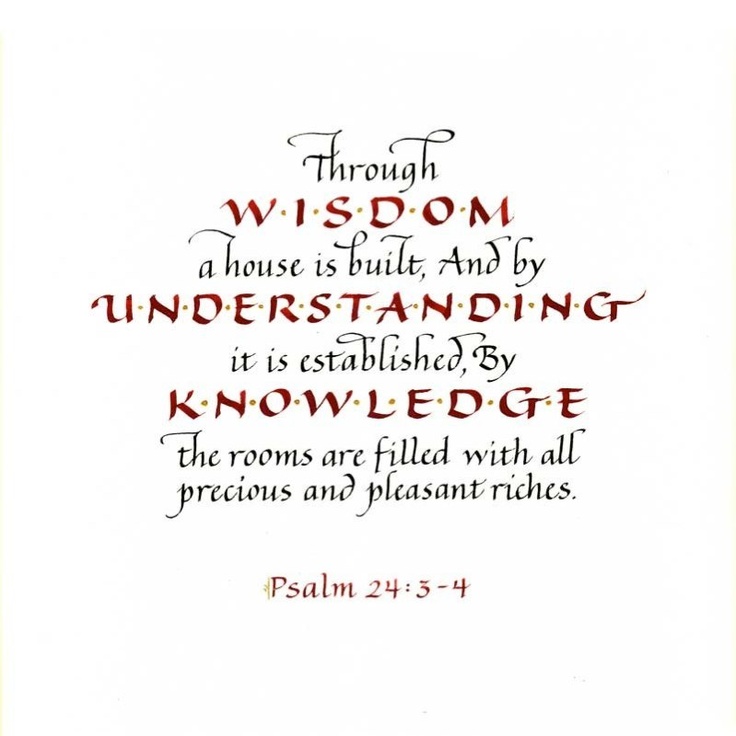 Through
W·I·S·D·O·M
a house is built, And by
U·N·D·E·R·S·T·A·N·D·I·N·G
it is established, By
K·N·O·W·L·E·D·G·E
the rooms are filled with all
precious and pleasant riches.
Psalm 24:3-4